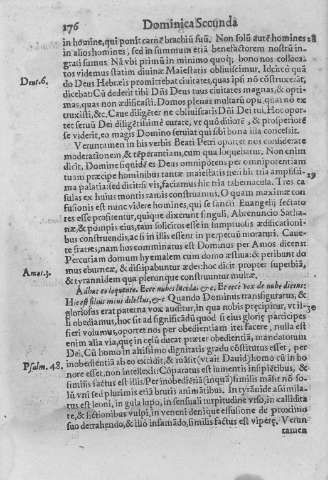 176 Dominica Secunda
in homine, qui ponit carnē brachiū suū. Non solū autē homines 28
in alios homines, sed in summum etiā benefactorem nostrū in-
grati sumus. Nā vbi primū in minimo quoq; bono nos colloca-
tos videmus statim diuinæ Maiestatis obliuiscimur. Idcircò quā
Deut. 6. do Deus Hebræis promittebat ciuitates, quas ipsi nō cōstruxerāt,
dicebat: Cū dederit tibi Dñs Deus tuus ciuitates magnas, & opti-
mas, quas non ædificasti. Domos plenas multarū opū, quas nō ex
truxisti, &c. Caue diligēter ne obliuiscaris Dñi Dei tui. Hoc opor-
tet seruū Dei diligētissimè aduertere, vt quādo
se viderit, eo magis Domino seruiat qui sibi bona illa concessit.
Veruntamen in his verbis Beati Petri oportet nos considerare
moderationem, & tēperantiam, cum qua loquebatur. Non enim
dicit, Domine si quidē es Deus omnipotens per omnipotentiam
tuam præcipe hominibus tantæ maiestatis
ma palatia sed dicit: si vis, faciamus hic tria tabernacula. Tres ca- 29
sulas ex huius montis ramis construamus. O quam maxima con-
fusionis est nunc videre homines, qui se sancti Euangelij sectato
res esse profitentur, quique dixerunt singuli, Abrenuncio Satha-
næ, & pompis eius, tam solicitos esse in sumptuosis ædificationi-
bus construendis, ac si in illis essent in perpetuū moraturi. Caue-
te fratres, nam hos comminatus est Dominus per Amos dicens:
Percutiam domum hyemalem cum domo æstiua: & peribunt do
Amos. 3. mus eburneæ, & dissipabuntur ædes: hoc dicit propter superbiā,
& tyrannidem qua plerunque construuntur multæ.
Adhuc eo loquente. Ecce nubes lucida &c. Et ecce vox de nube dicens:
Hic est filius meus dilectus, &c. Quando Dominus transfiguratus, &
gloriosus erat paterna vox auditur, in qua nobis præcipitur, vt il- 30
li obediamus, hoc fit ad significādū quod si eius glorię participes
fieri volumus, oportet nos per obedientiam iter facere, nulla est
enim alia via, quæ in cœlū ducat præter obedientiā, mandatorum
Dei. Cū homo in altissimo dignitatis gradu cōstitutus esset, per
Psalm. 48. inobedientiā ab eo excidit, & (vt ait Dauid) homo cū in ho
nore esset, non intellexit: Cōparatus est iumentis insipiētibus, &
similis factus est illis. Per inobediētiā (inquā) similis
lū vni sed plurimis etiā brutis animātibus. In tyrānide assimila-
tus est leoni, in gula lupo, in sensuali turpitudine vrso, in calliditа
te, & fictionibus vulpi, in veneni denique effusione de proximo
suo detrahendo, & illū infamādo, similis factus est viperę. Verun
tamen